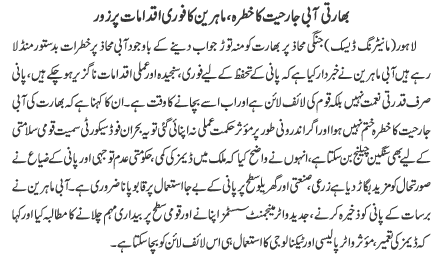 بھارتی آبی جارحیت کا خطرہ، ماہرین کا فوری اقدامات پر زور
لاہور (مانیٹرنگ ڈیسک) جنگی محاذ پر بھارت کو منہ توڑ جواب دینے کے باوجود آبی محاذ پر خطرات بدستور منڈلا
رہے ہیں آبی ماہرین نے خبردار کیا ہے کہ پانی کے تحفظ کے لیے فوری، سنجیدہ اور عملی اقدامات ناگزیر ہو چکے ہیں، پانی
صرف قدرتی نعمت نہیں بلکہ قوم کی لائف لائن ہے اور اب اسے بچانے کا وقت ہے۔ ان کا کہنا ہے کہ بھارت کی آبی
جارحیت کا خطرہ ختم نہیں ہوا اور اگر اندرونی طور پر مؤثر حکمت عملی نہ اپنائی گئی تو یہ بحران فوڈ سیکورٹی سمیت قومی سلامتی
کے لیے بھی سنگین چیلنج بن سکتا ہے، انہوں نے واضح کیا کہ ملک میں ڈیمز کی کمی، حکومتی عدم توجہی اور پانی کے ضیاع نے
صورتحال کو مزید بگاڑ دیا ہے زرعی، صنعتی اور گھریلو سطح پر پانی کے بے جا استعمال پر قابو پانا ضروری ہے۔ آبی ماہرین نے
برسات کے پانی کو ذخیرہ کرنے، جدید واٹر مینجمنٹ سسٹمز اپنانے اور قومی سطح پر بیداری مہم چلانے کا مطالبہ کیا اور کہا
کہ ڈیمز کی تعمیر، مؤثر واٹر پالیسی اور ٹیکنالوجی کا استعمال ہی اس لائف لائن کو بچا سکتا ہے۔